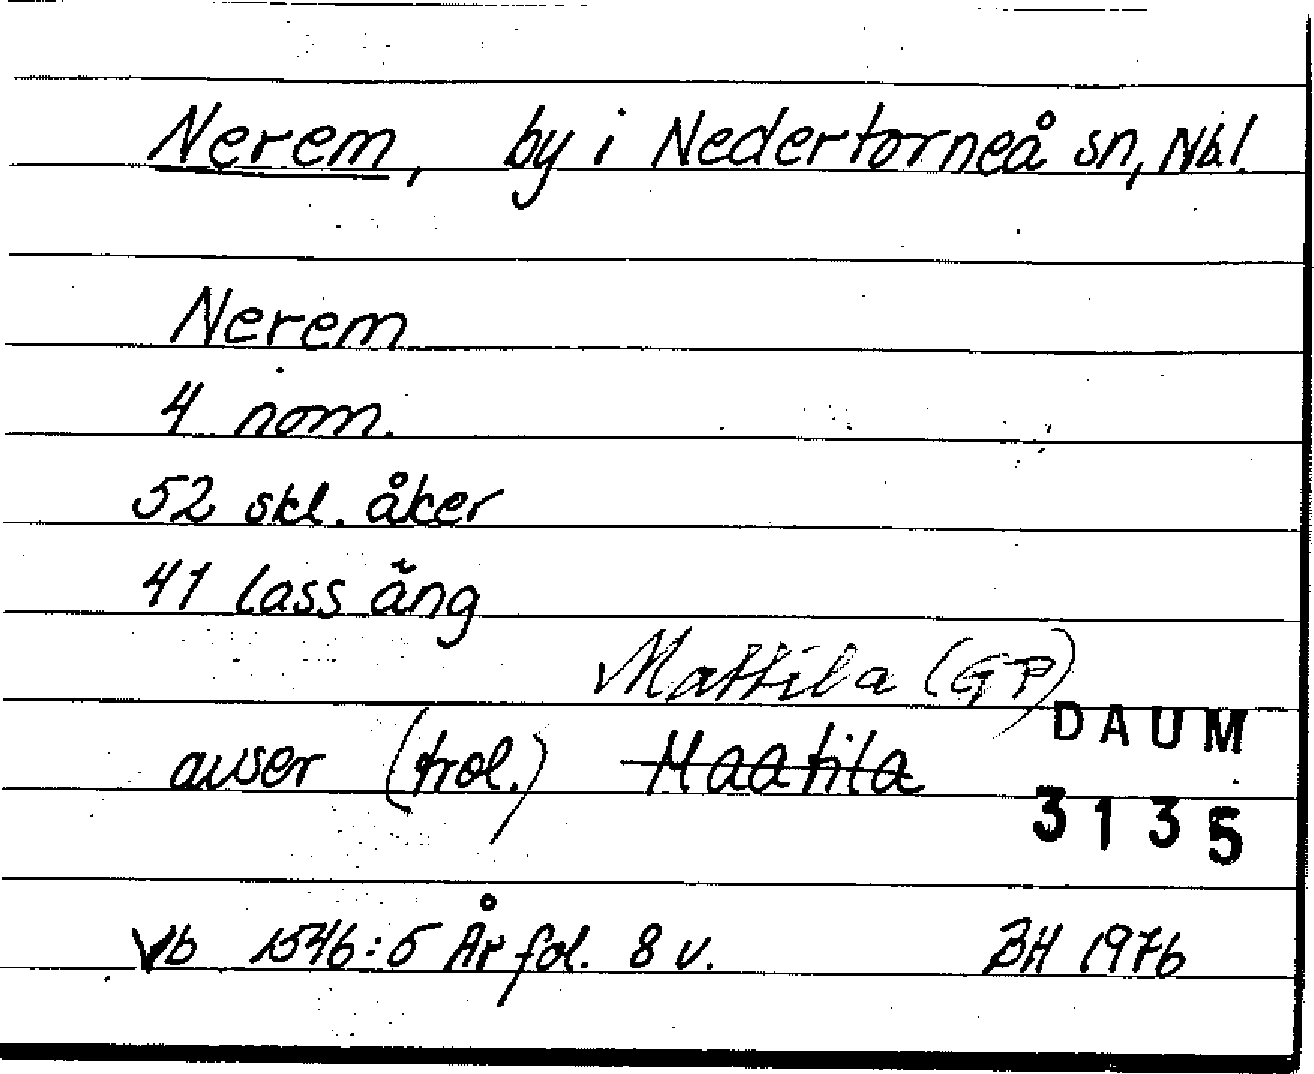 Nerem, by i Nedertorneå sn, Nb.l.
Nerem
4 nom.
52 skl. åker
41 lass äng
Mattila (GP)
avser (trol.) Maatila
DAUM
3135
Vb 1546:5 År fol. 8 v. BH 1976